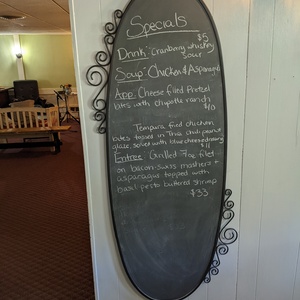 Specials
$5
Drink: Cranberry whiskey
sour
Soup: Chicken & Asparagus
App: Cheese filled Pretzel
bites with chipotle ranch
$10
Tempura fried chicken
bites tossed in Thai chili peanut
glaze, served with blue cheese dressing
$11
Entree: Grilled 7oz filet
on bacon-swiss mashers +
asparagus topped with
basil pesto buttered shrimp
$33